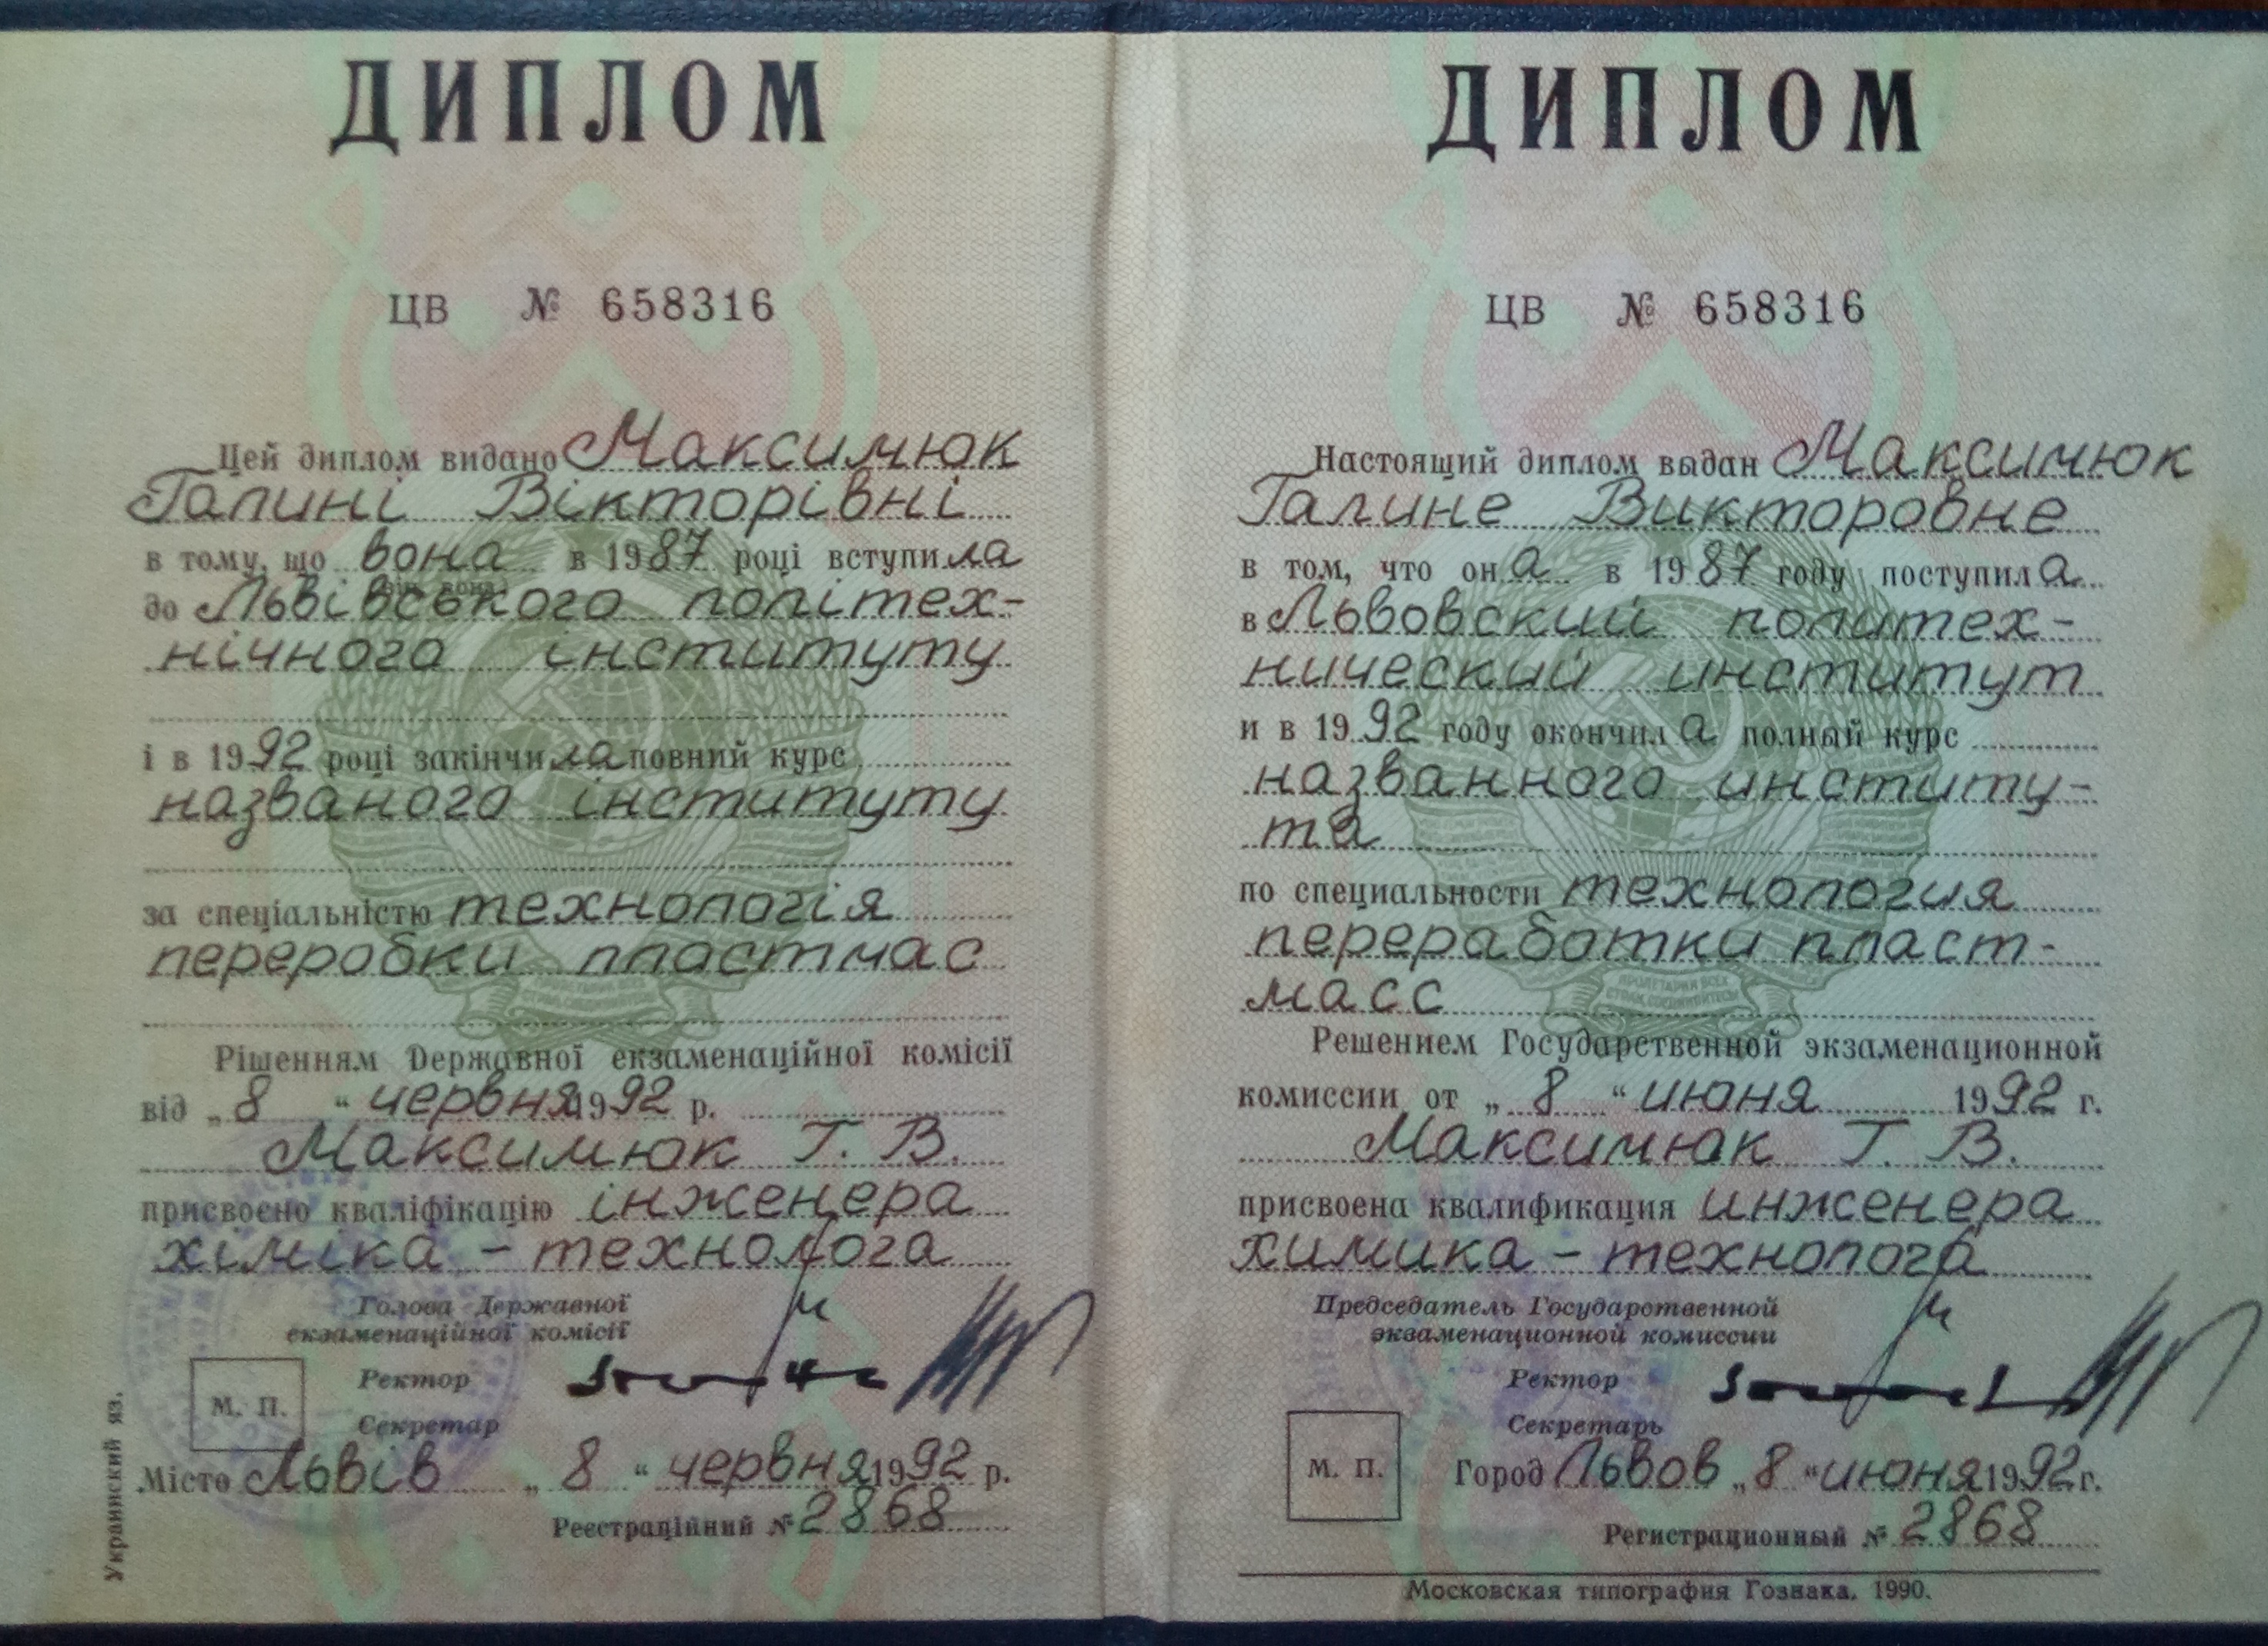 ДИПЛОМ
ЦВ № 658316
Цей диплом видано Максимюк
Галині Вікторівні
в тому, що вона в 1987 році вступила
(він, вона)
до Львівського політех-
нічного інституту
і в 1992 році закінчила повний курс
названого інституту
за спеціальністю технологія
переробки пластмас
Рішенням Державної екзаменаційної комісії
від „8“ червня 1992 р.
Максимюк Г. В.
присвоєно кваліфікацію інженера
хіміка - технолога
Голова Державної
екзаменаційної комісії
Ректор
М. П.
Секретар
Місто Львів „8“ червня 1992 р.
Реєстраційний № 2868
Украинский яз.
ДИПЛОМ
ЦВ № 658316
Настоящий диплом выдан Максимюк
Галине Викторовне
в том, что она в 1987 году поступила
в Львовский политех-
нический институт
и в 1992 году окончила полный курс
названного институ-
та
по специальности технология
переработки пласт-
масс
Решением Государственной экзаменационной
комиссии от „8“ июня 1992 г.
Максимюк Г. В.
присвоена квалификация инженера
химика - технолога
Председатель Государственной
экзаменационной комиссии
Ректор
Секретарь
М. П.
Город Львов „8“ июня 1992 г.
Регистрационный № 2868
Московская типография Гознака. 1990.